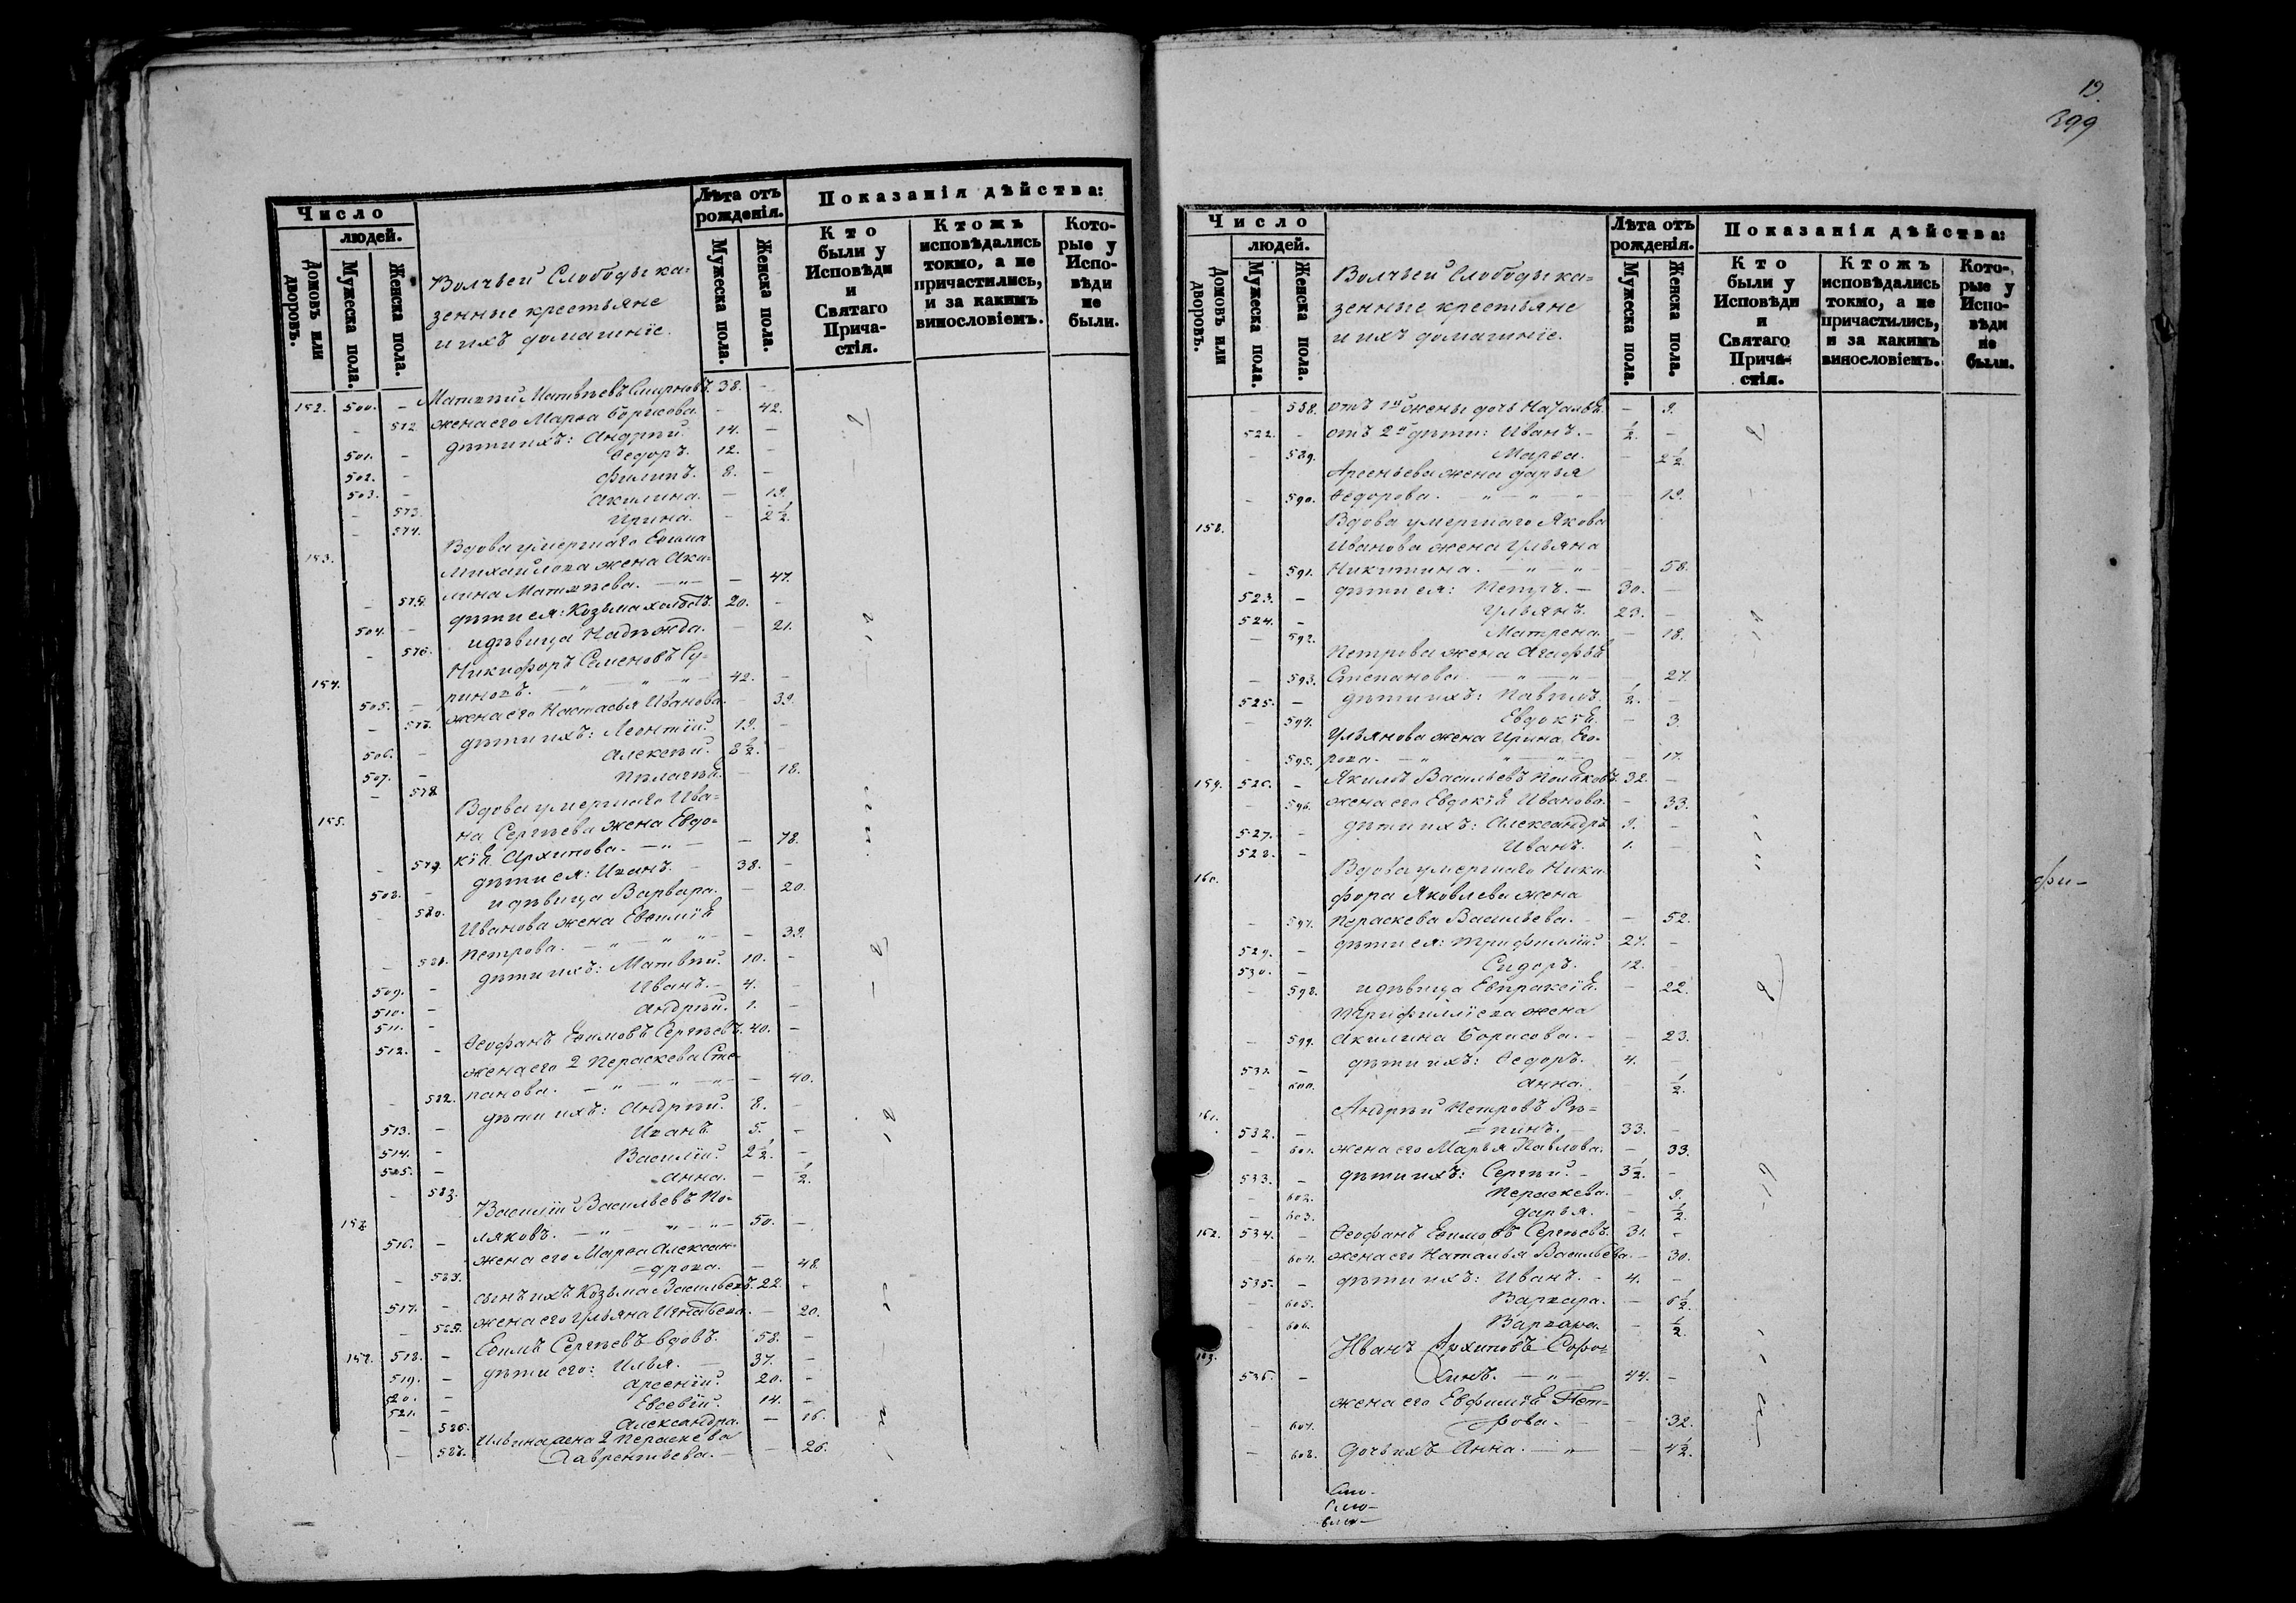 Число
людей.
Домовъ или дворовъ.
Мужеска пола.
Женска пола.
Волчьей Слободы ка=
зенные крестьяне
и ихъ домашніе.
Лѣта отъ рожденія.
Мужеска пола.
Женска пола.
Показанія дѣйства:
Кто были у Исповѣди и Святаго Прича-стія.
Ктожъ исповѣдались токмо, а не причастились, и за какимъ винословіемъ.
Кото-рые у Испо-вѣди не были.
152. 500. – Матвѣй Матвѣевъ Смирновъ. 38. –
– 572. жена его Марѳа Борисова. – 42.
501. – дѣти ихъ: Андрѣй. 14. –
502. – Ѳедоръ. 12. –
503. – Филипъ. 8. –
– 573. Акилина. – 19.
– 574. Ирина. – 2½.
153. Вдова умершаго Еѳима
Михайлова жена Аки=
– 575. лина Матвѣева. – „ – – 47.
504. – дѣти ея: Козьма холостъ. 20. –
– 576. и дѣвица Надѣжда. – 21.
154. Никифоръ Семеновъ Су=
505. – риновъ. – „ – „ – 42. –
– 577. жена его Настасья Иванова. – 39.
506. – дѣти ихъ: Леонтій. 19. –
507. – Алексѣй. 8½. –
– 578. Пѣлагѣя. – 18.
155. Вдова умершаго Ива=
на Сергѣева жена Евдо=
– 579. кія Архипова. – „ – – 78.
508. – дѣти ея: Иванъ. – 38. –
– 580. и дѣвица Варвара. – 20.
Иванова жена Евѳимія
– 581. Петрова. – „ – „ – „ – – 39.
509. – дѣти ихъ: Матвѣй. 10. –
510. – Иванъ. – 4. –
511. – Андрѣй. 1. –
512. – Ѳеофанъ Еѳимовъ Сергѣевъ. 40. –
жена его 2 Пераскева Сте=
– 582. панова. – „ – „ – „ – – 40.
513. – дѣти ихъ: Андрѣй. 8. –
514. – Иванъ. 5. –
515. – Василій. 2½. –
– 583. Анна. – ½.
Василій Васильевъ По=
516. – ляковъ. – „ – „ – „ – 50. –
жена его Марѳа Алексан=
=дрова. – 48.
517. – сынъ ихъ Козьма Васильевъ. 22. –
– 585. жена его Ульяна Игнатьева. – 20.
157. 518. – Еѳимъ Сергѣевъ вдовъ. 58. –
519. – дѣти его: Илья. – 37. –
520. – Арсеній. 20. –
521. – Евсевій. 14. –
– 586. Александра. – 16.
Ильина жена 2 Пераскева
– 587. Лаврентьева. – – 26.
19.
399
Число
людей.
Домовъ или дворовъ.
Мужеска пола.
Женска пола.
Волчьей Слободы ка=
зенные крестьяне
и ихъ домашніе.
Лѣта отъ рожденія.
Мужеска пола.
Женска пола.
Показанія дѣйства:
Кто были у Исповѣди и Святаго Прича-стія.
Ктожъ исповѣдались токмо, а не причастились, и за какимъ винословіемъ.
Кото-рые у Испо-вѣди не были.
– 588. отъ 1й жены дочь Наталья. – 9.
522. – отъ 2й дѣти: Иванъ. – ½. –
– 589. Марѳа. – 2½.
Арсеньева жена Дарья
– 590. Ѳедорова. – „ – „ – – 19.
158. Вдова умершаго Якова
Иванова жена Ульяна
– 591. Никитина. – „ – „ – 58.
523. – дѣти ея: Петръ. – 30. –
524. – Ульянъ. 23. –
– 592. Матрена. – 18.
Петрова жена Агафья
– 593. Степанова. – „ – „ – – 27.
525. – дѣти ихъ: Павелъ. ½. –
– 594. Евдокія. – 3.
Ульянова жена Ирина Его=
– 595. рова. – „ – „ – – 17.
159. 526. – Якимъ Васильевъ Поляковъ. 32. –
– 596. жена его Евдокія Иванова. – 33.
527. – дѣти ихъ: Александръ 9. –
528. – Иванъ. 1. –
160. Вдова умершаго Ники=
фора Яковлева жена
– 597. Пераскева Васильева. – – 52.
529. – дѣти ея: Трифиллій. 27. –
530. – Сидоръ. 12. –
– 598. и дѣвица Евпраксія. – 22.
Трифиллиева жена
– 599. Акилина Борисова. – – 23.
531. – дѣти ихъ: Ѳедоръ. 4. –
– 600. Анна. – ½.
161. Андрѣй Петровъ Рѣ=
532. – =пинъ. – 33. –
– 601. жена его Марья Павлова. – 33.
533. – дѣти ихъ: Сергѣй. – 3½. –
– 602. Пераскева. – 9.
– 603. Дарья. – ½.
162. 534. – Ѳеофанъ Еѳимовъ Сергѣевъ. 31. –
– 604. жена его Наталья Васильева. – 30.
535. – дѣти ихъ: Иванъ. – 4. –
– 605. Варвара. – 6½.
– 606. Варвара. – ½.
163. Иванъ Архиповъ Софо=
536. – 44. –
жена его Евфимія Пет=
– 607. =рова. – – 32.
– 608. дочь ихъ Анна. – „ – – 4½.
фи–